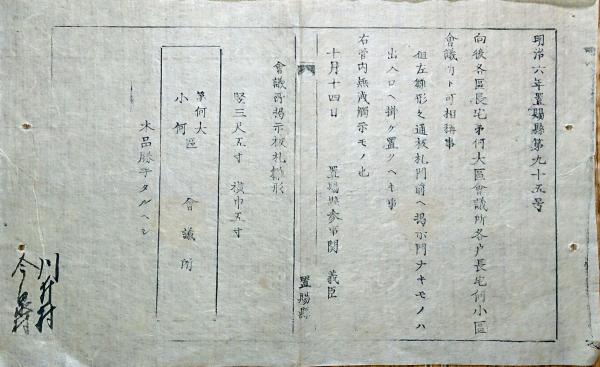 明治六年置賜縣第九十五号
向後各區長宅第何大區會議所各戸長宅何小區
會議所ト可相稱事
但左雛形之通板札門前ヘ掲示門ナキモノハ
出入口ヘ掛ケ置クヘキ事
右管内無洩觸示モノ也
十月十四日 置賜縣参事関 義臣
置賜縣
會議所掲示板札雛形
竪三尺五寸 横巾五寸
第何大區
小何 會議所
木品勝手タルヘシ
川井村
今泉村